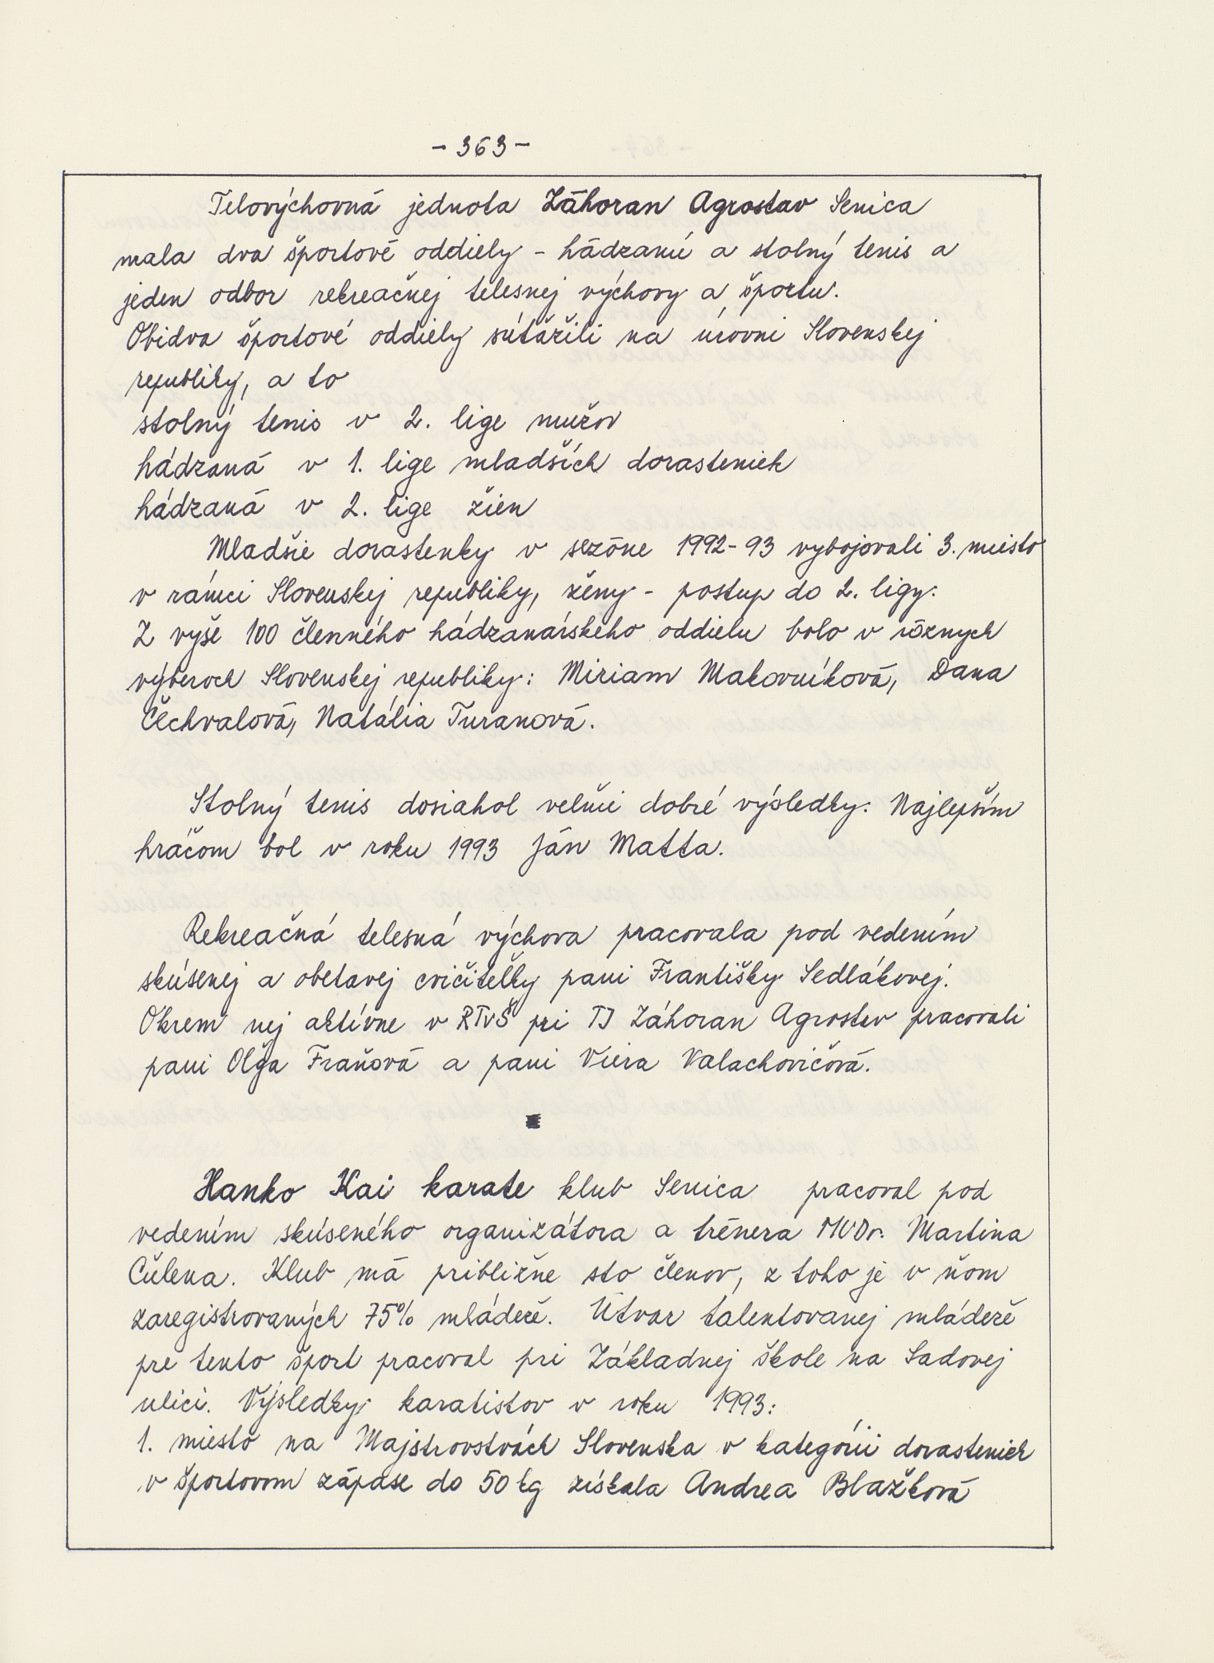 - 363 -
Telovýchovná jednota Záhoran Agrostav Senica
mala dva športové oddiely - hádzanú a stolný tenis a
jeden odbor rekreačnej telesnej výchovy a športu.
Obidva športové oddiely súťažili na úrovni Slovenskej
republiky, a to
stolný tenis v 2. lige mužov
hádzaná v 1. lige mladších dorasteniek
hádzaná v 2. lige žien
Mladšie dorastenky v sezóne 1992-93 vybojovali 3. miesto
v rámci Slovenskej republiky, ženy - postup do 2. ligy.
Z vyše 100 členného hádzanárskeho oddielu bolo v rôznych
výberoch Slovenskej republiky: Miriam Makovníková, Dana
Čechvalová, Natália Turanová.
Stolný tenis dosiahol veľmi dobré výsledky. Najlepším
hráčom bol v roku 1993 Ján Matta.
Rekreačná telesná výchova pracovala pod vedením
skúsenej a obetavej cvičiteľky pani Františky Sedlákovej.
Okrem nej aktívne v RTVŠ pri TJ Záhoran Agrostav pracovali
pani Oľga Fraňová a pani Viera Valachovičová.
Hanko Kai karate klub Senica pracoval pod
vedením skúseného organizátora a trénera MUDr. Martina
Čulena. Klub má približne sto členov, z toho je v ňom
zaregistrovaných 75% mládeže. Útvar talentovanej mládeže
pre tento šport pracoval pri Základnej škole na Sadovej
ulici. Výsledky karatistov v roku 1993:
1. miesto na Majstrovstvách Slovenska v kategórii dorasteniek
v športovom zápase do 50 kg získala Andrea Blažková